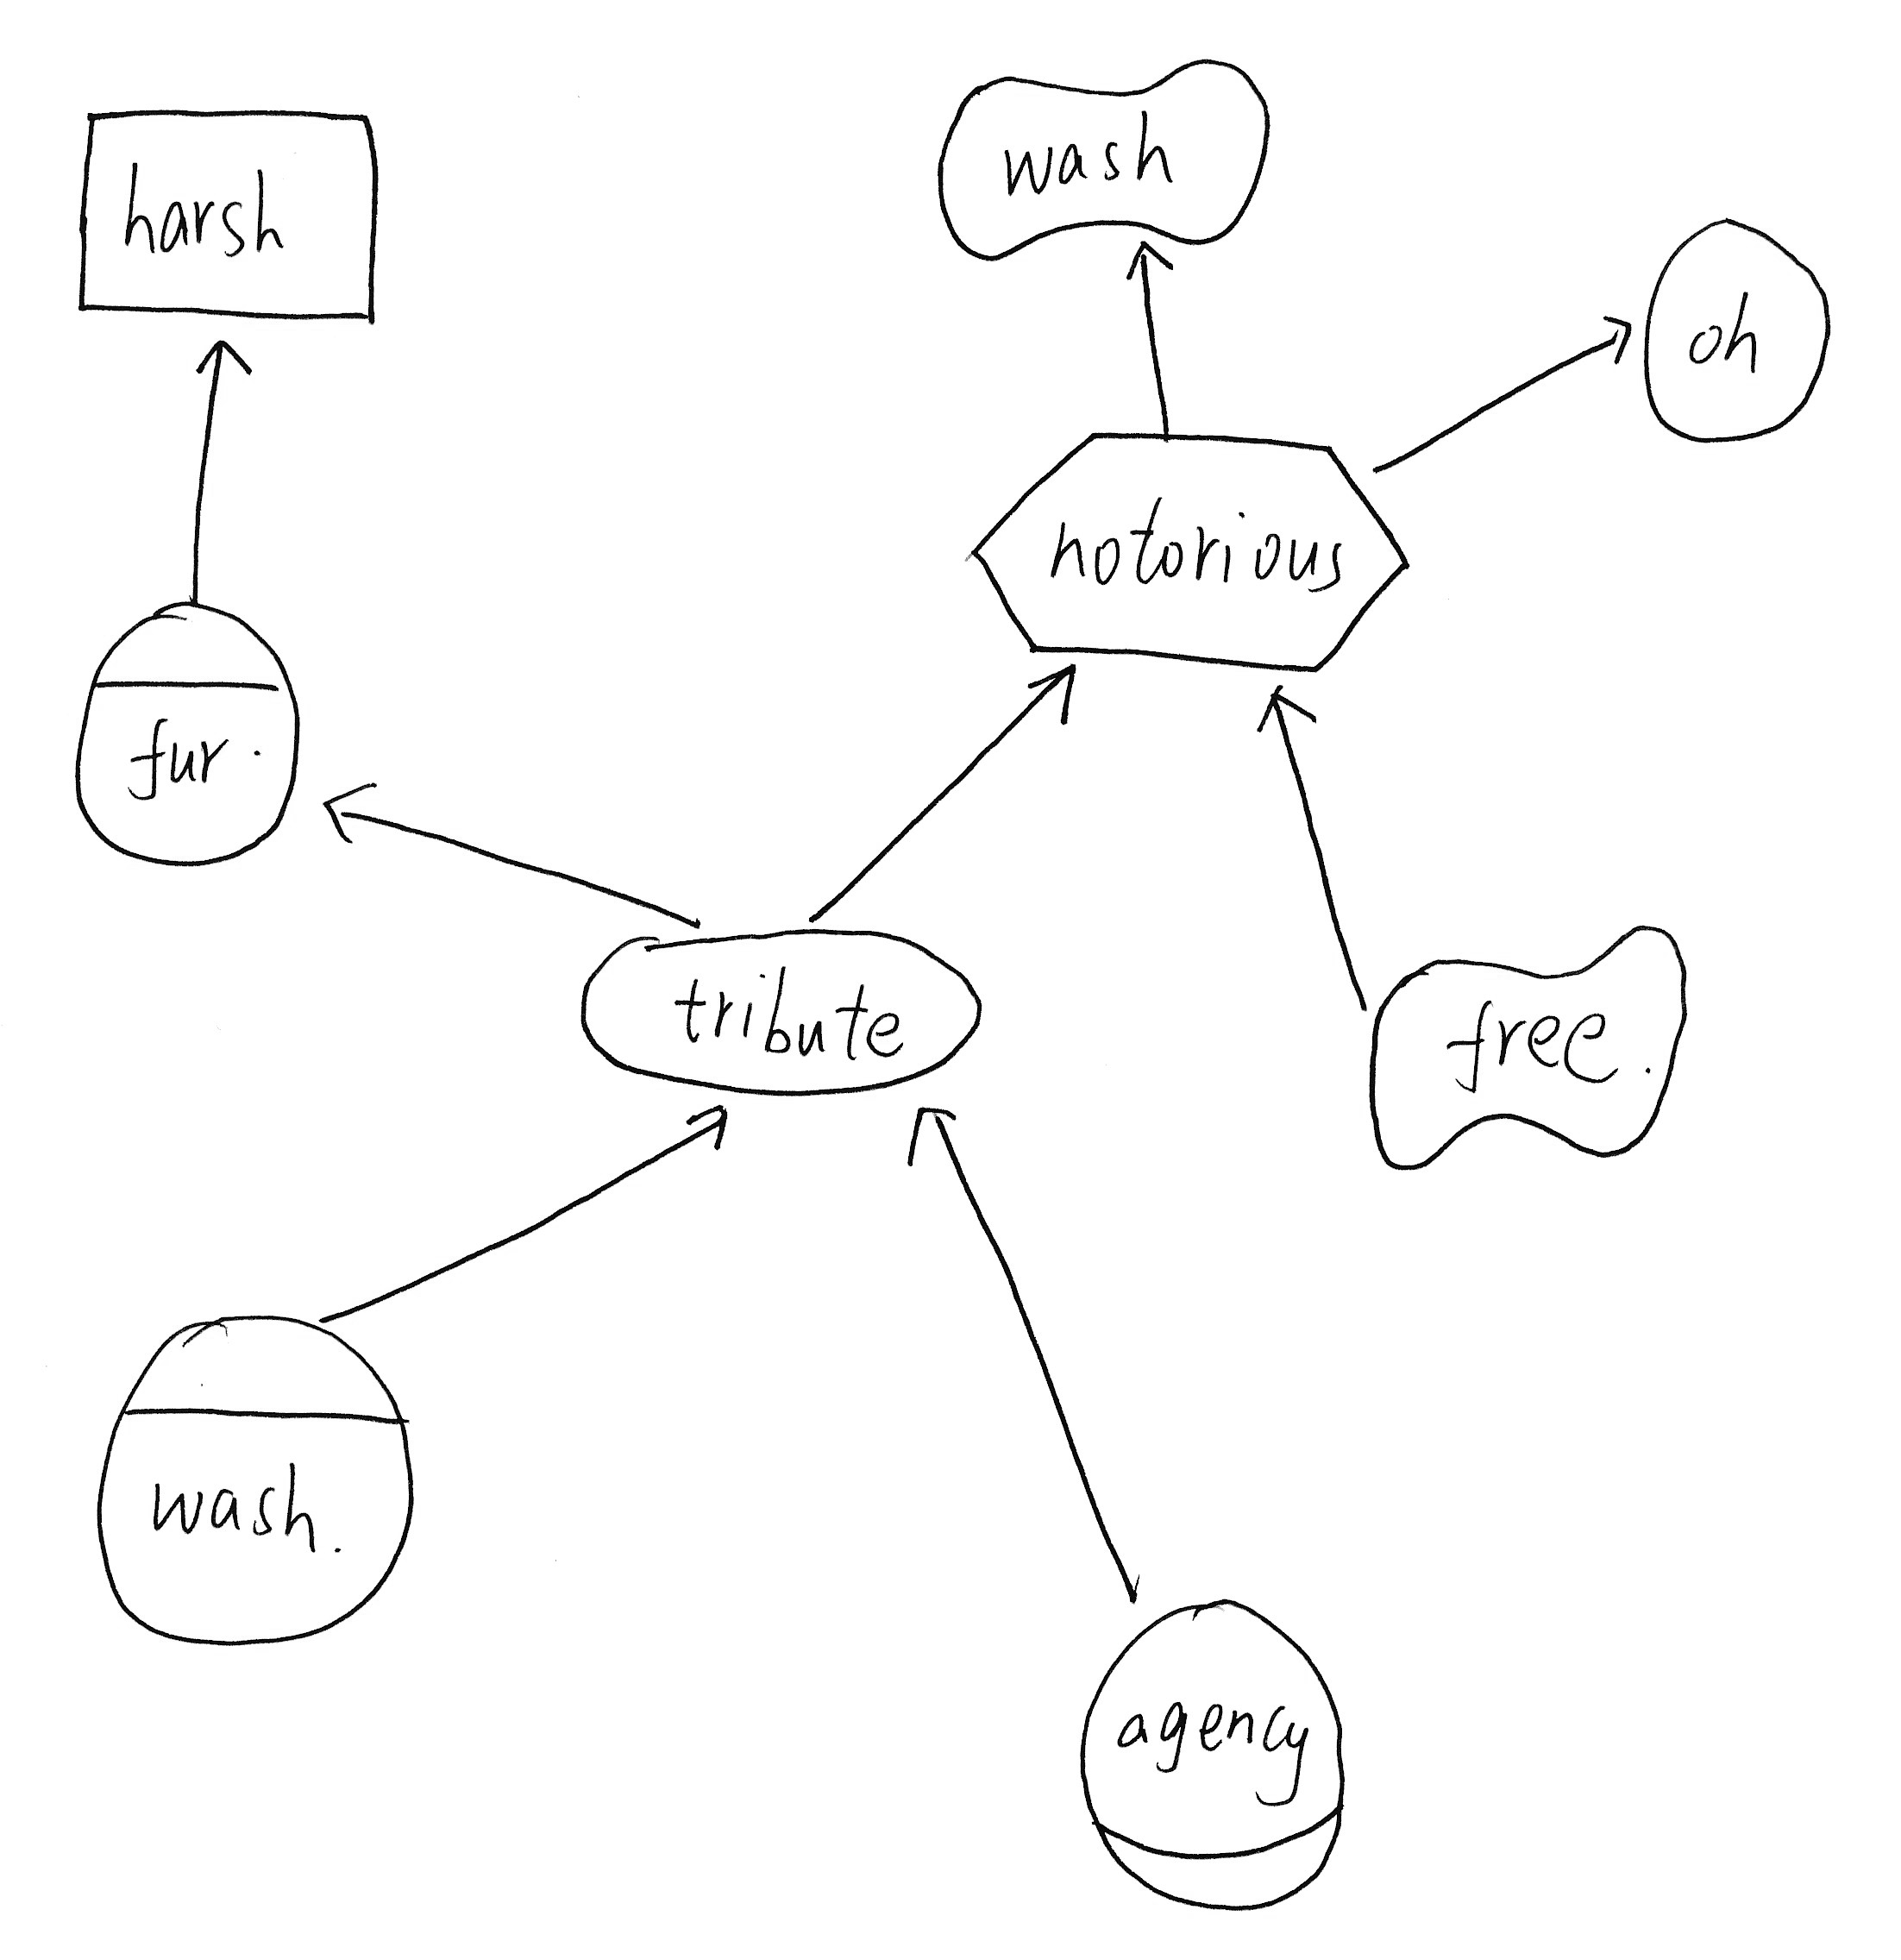 wash
harsh
oh
notorious
fur.
tribute
free.
wash.
agency